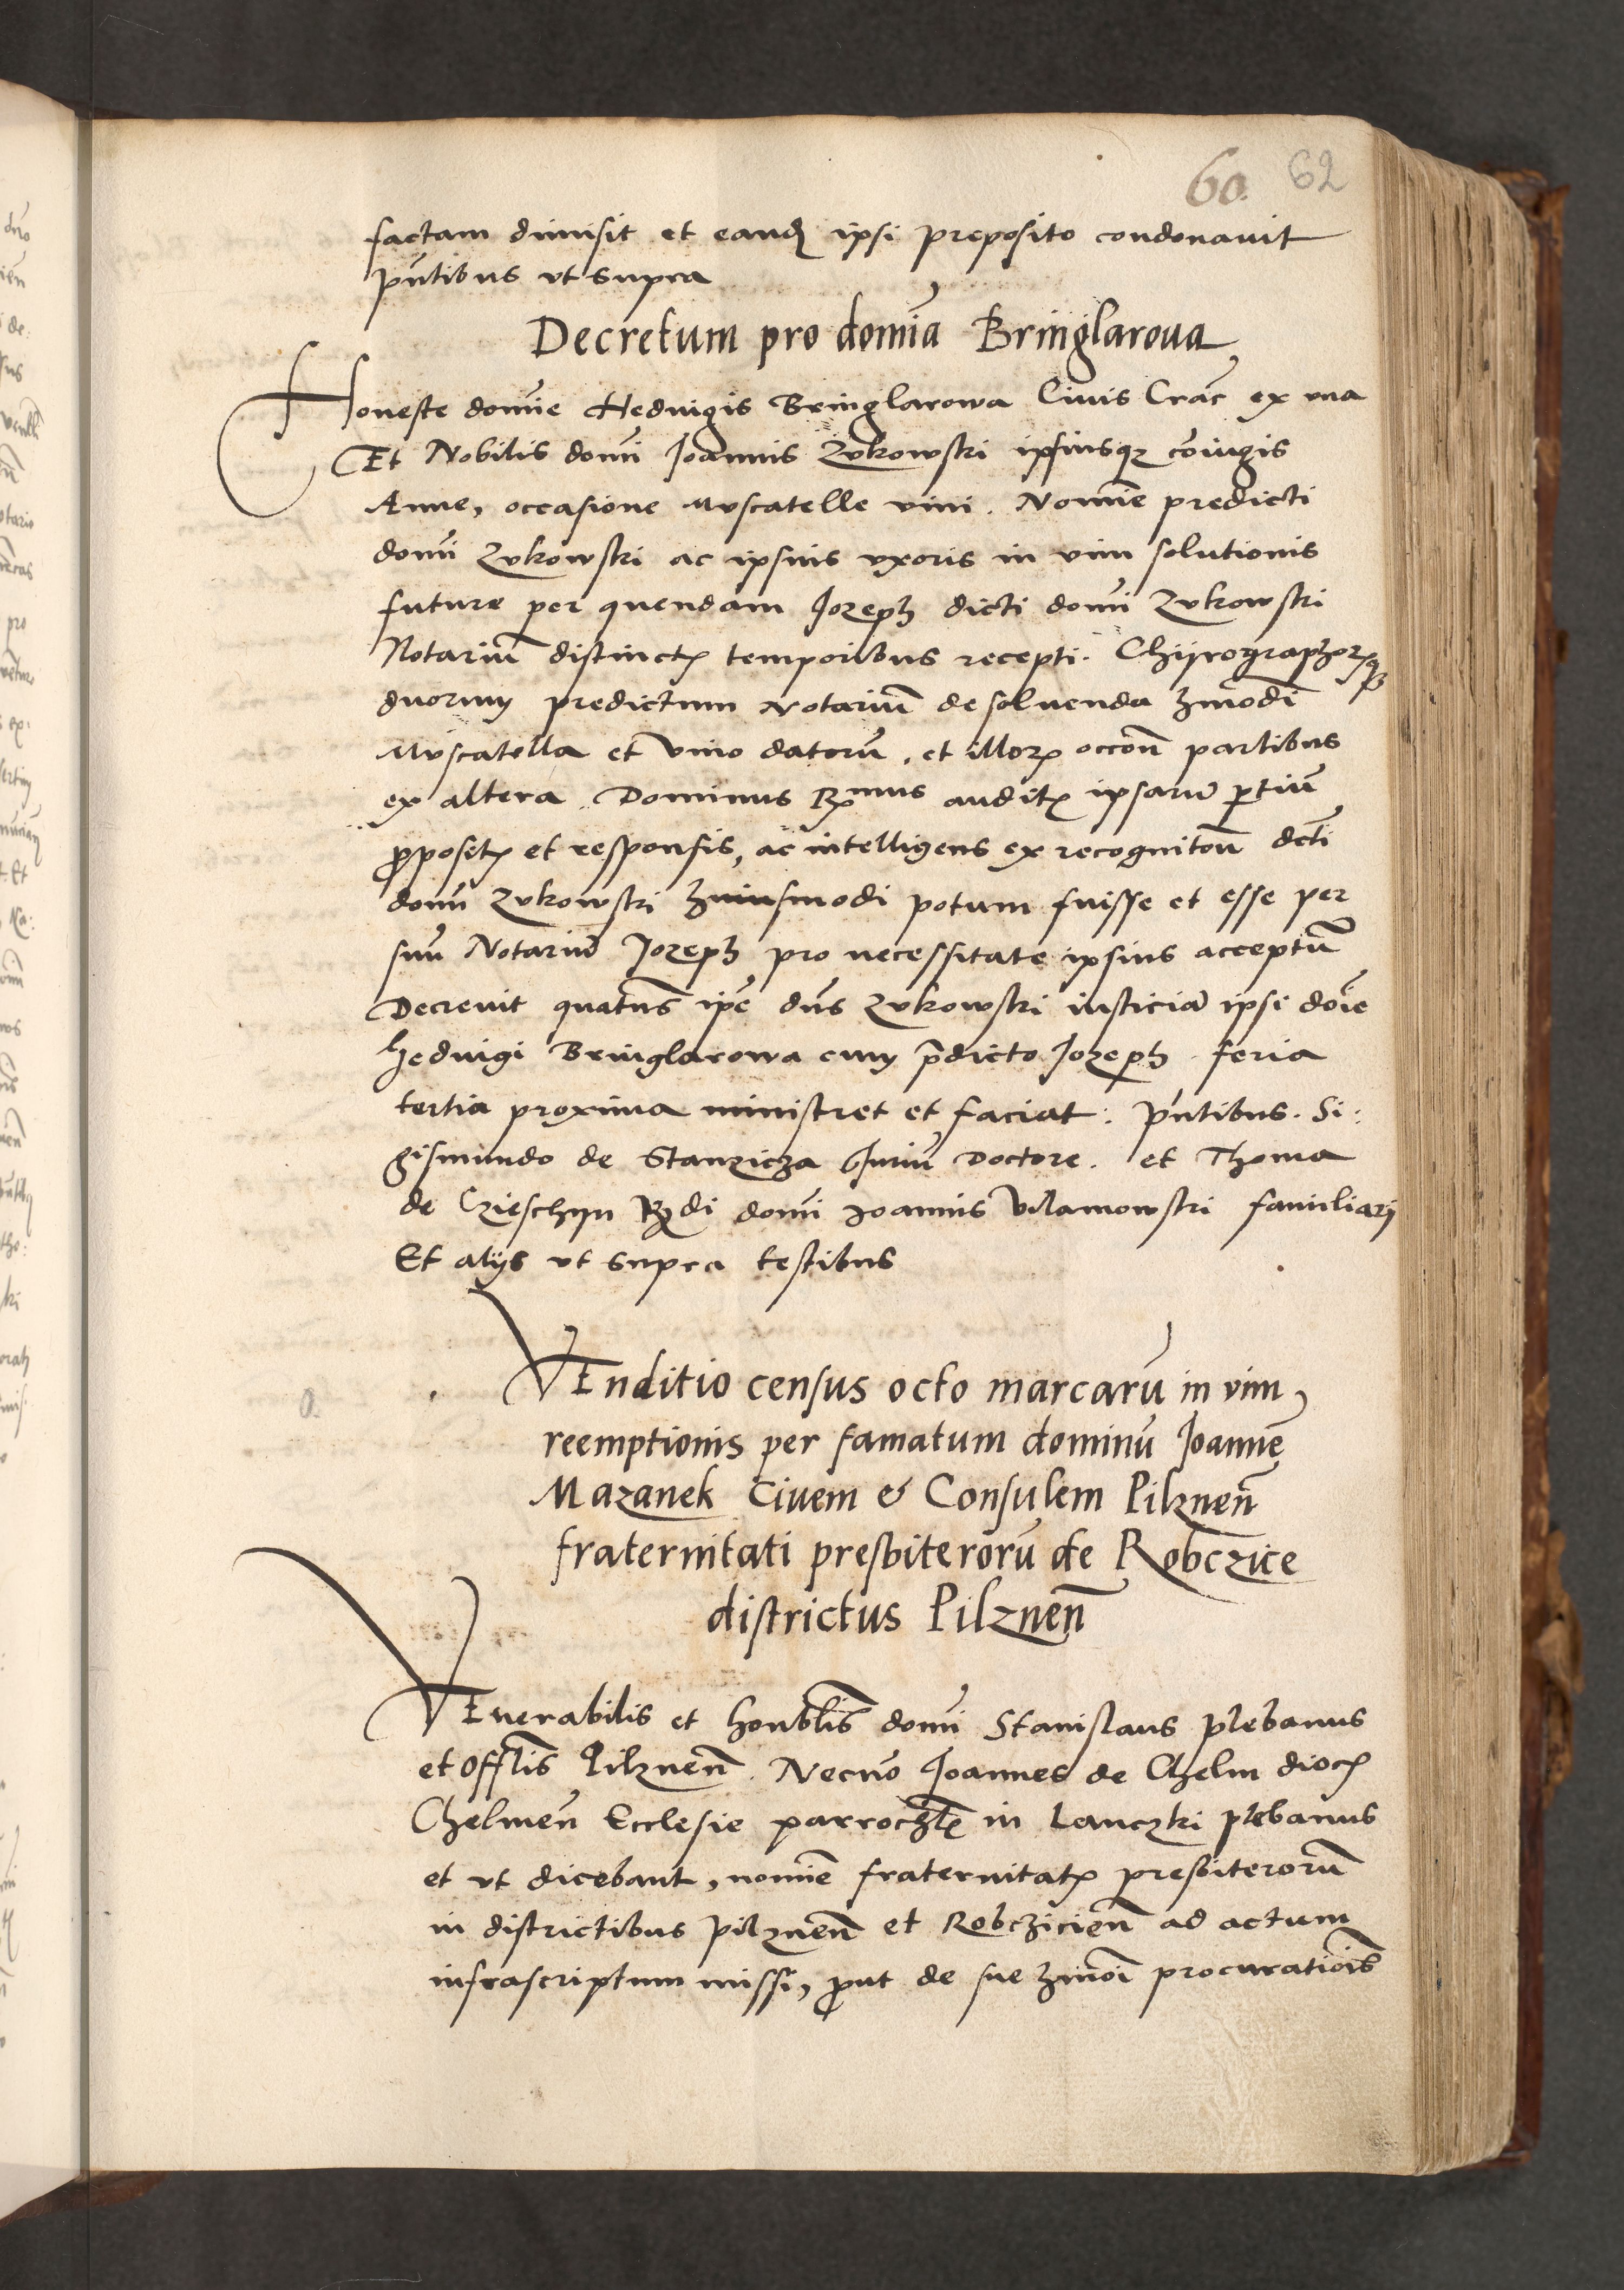 60. 62
factam dimisit et eand ipsi preposito condonauit
pntibus vt supra
Decretum pro domīa Bringlaroua
Honeste domīe Heduigis Bringlarowa Ciuis Crac̄ ex vna
Et Nobilis domī Joannis Zukowski ipsiusqꝫ cōiugis
Anne, occasione Muscatelle vini. Nomīe predicti
domī Zukowski ac ipsius vxoris in vim solutionis
future per quendam Jozeph dicti domī Zukowski
Notariū distinctꝭ temporibus recepti. Chijrographorꝝqꝫ
duorum predictum Notariū de soluenda hmōdi
Muscatella et vino datorū, et illorꝝ occon̄ partibus
ex altera. Dominus Rmus auditꝭ ipsarū ꝑtiū
ꝓpositꝭ et responsis, ac intelligens ex recogniton̄ dcti
domī Zukowski huiusmodi potum fuisse et esse per
suū Notariū Jozeph pro necessitate ipsius acceptū
Decreuit quatn̄s ipē dn̄s Zukowski iusticiā ipsi doīe
Heduigi Bringlarowa cum p̄dicto Jozeph feria
tertia proxima ministret et faciat: pn̄tibus. Si:
gismundo de Stanzicza Juriū Doctore. et Thoma
de Czieschyn Rdi domī Joannis Vilamowski familiari
Et alijs vt supra testibus
VEnditio census octo marcarū in vim
reemptionis per famatum dominū Joannē
Mazanek Ciuem & Consulem Pilznen̄
fraternitati presbiterorū de Robczice
districtus Pilznen̄
VEnerabilis et honblīs domī Stanislaus plebanus
et offlīs Pilznen̄. Necnō Joannes de Chelm diocꝭ
Chelmen̄ Ecclesie parrochlꝭ in Lanczki plebanus
et vt dicebant, nomīe fraternitatꝭ presbiterorū
in districtibus Pilznen̄ et Robczicien̄ ad actum
infrascriptum missi, ꝓut de sue hmōi procuratiōis